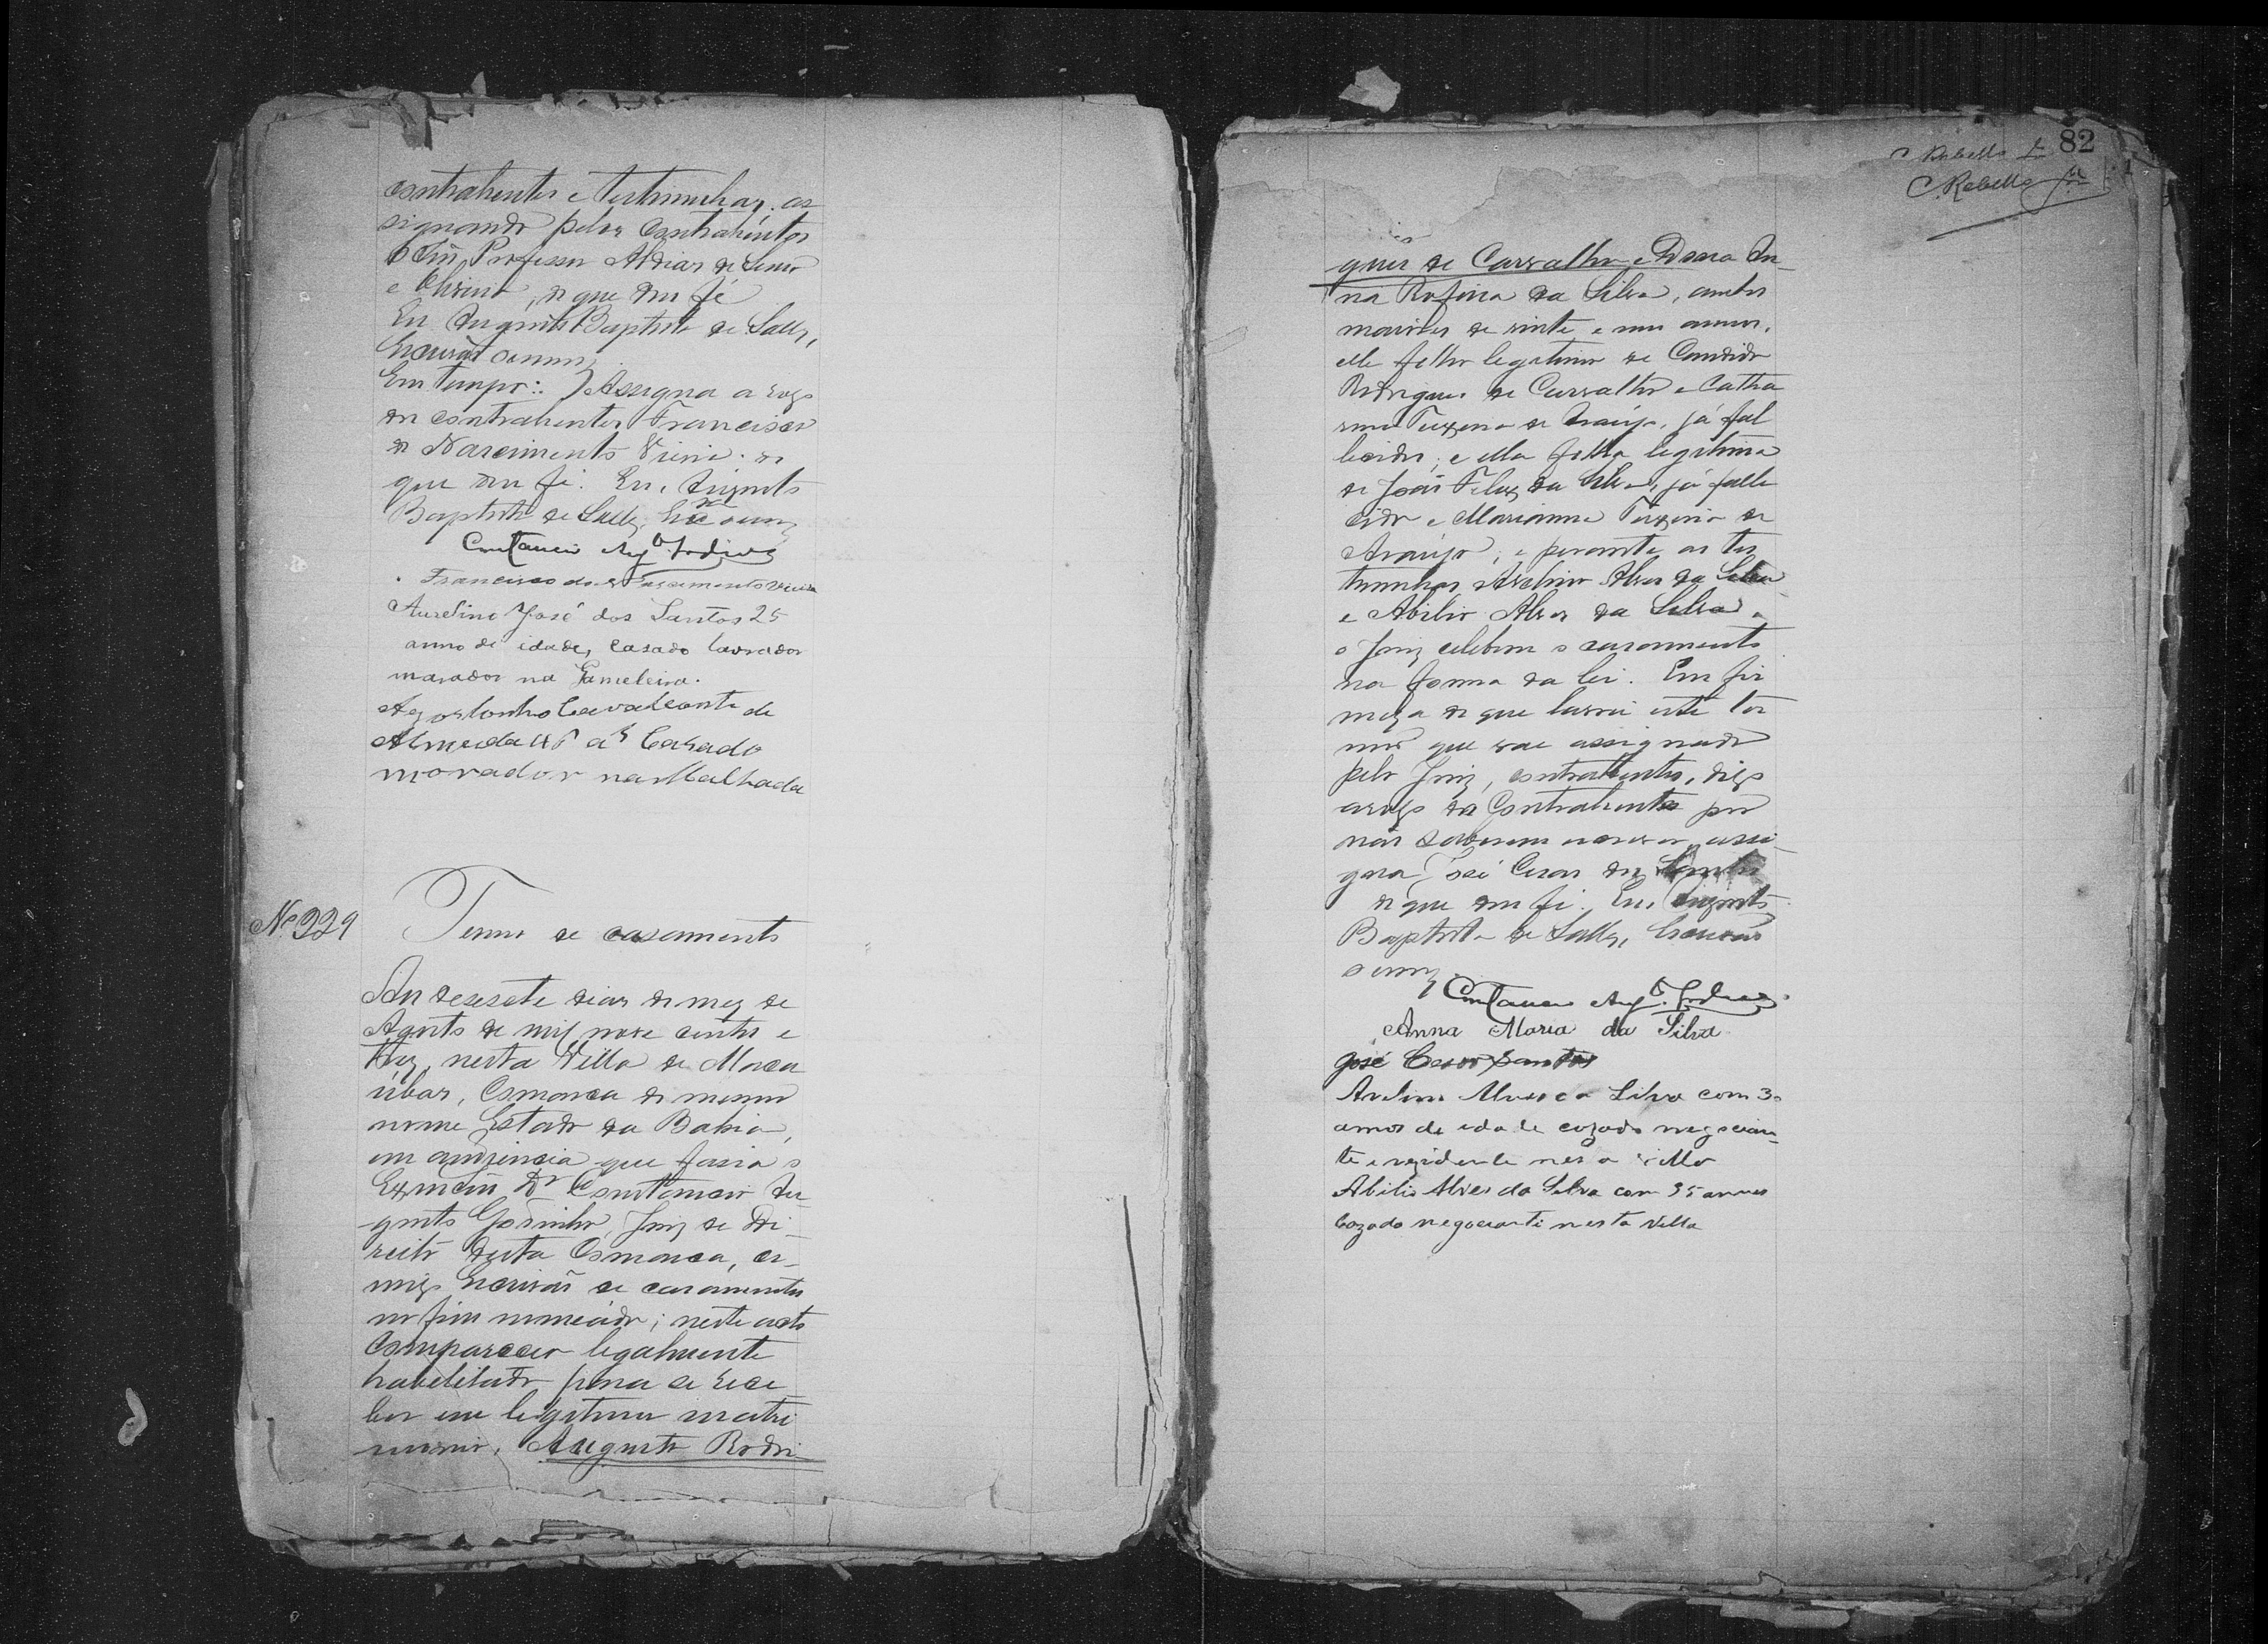 contrahentes e testimunhas, as
signando pelos contrahentes
o Professor de
e Oliveira, de que dou fé
Eu Augusto Baptista de Salles,
Escrivão o escrevy
Em tempo: Assigna a rogo
dos contrahentes Francisco
do Nascimento Vieira. de
que dou fé. Eu, Augusto
Baptista de Salles, o escrevy
Constancio Augto. Godinho
Francisco do Nascimento Vieira
Aurelino José dos Santos 25
anno de idade, casado lavrador
morador na Gameleira.
Agostonho Cavalcante de
Almeida as Casado
morador na Malhada
No 229
Termo de casamento
Aos desesete dias do mez de
Agosto de mil nove centos e
trez, nesta Villa de Maca
úbas, Comarca do mesmo
nome Estado da Bahia,
em audiencia que fasia o
Dr Constancio Au-
gusto Godinho, Juiz de Di-
reito desta Comarca, co-
migo Escrivão de casamentos
no fim nomeado; neste acto
Compareceo legalmente
habilitado para se rece
ber em legitimo matri
monio, Augusto Rodri-
82
Rabello
Rabello
gues de Carvalho e Dona An-
na Rofina da Silva, ambos
maiores de vinte e um annos,
elle filho legitimo de Candido
Rodrigues de Carvalho e Catha
rina Teixeira de Araújo, já fal
lecidos; e ella filha legitima
de João Felix da Silva, já falle
cido e Marianna Teixeira de
Araújo; e perante as tes
timunhas Avelino Alves da Silva
e Abilio Alves da Silva,
o Juiz celebrou o casamento
na forma da lei. Em fir
meza de que lavrei este ter
mo que vae assignado
pelo Juiz, contrahentes, digo
a rogo da Contrahente por
não saberem escrever, assi-
gna José Cesar dos Santos
de que dou fé. Eu, Augusto
Baptista de Salles, Escrivão
o escrevy
Constancio Augto. Godinho
Anna Maria da Silva
José Cesar Santos
Avelino Alves da Silva com 30
annos de idade cazado negocian-
te e rezidente nesta villa
Abilio Alves da Silva com 35 annos
Cazado negociante nesta Villa